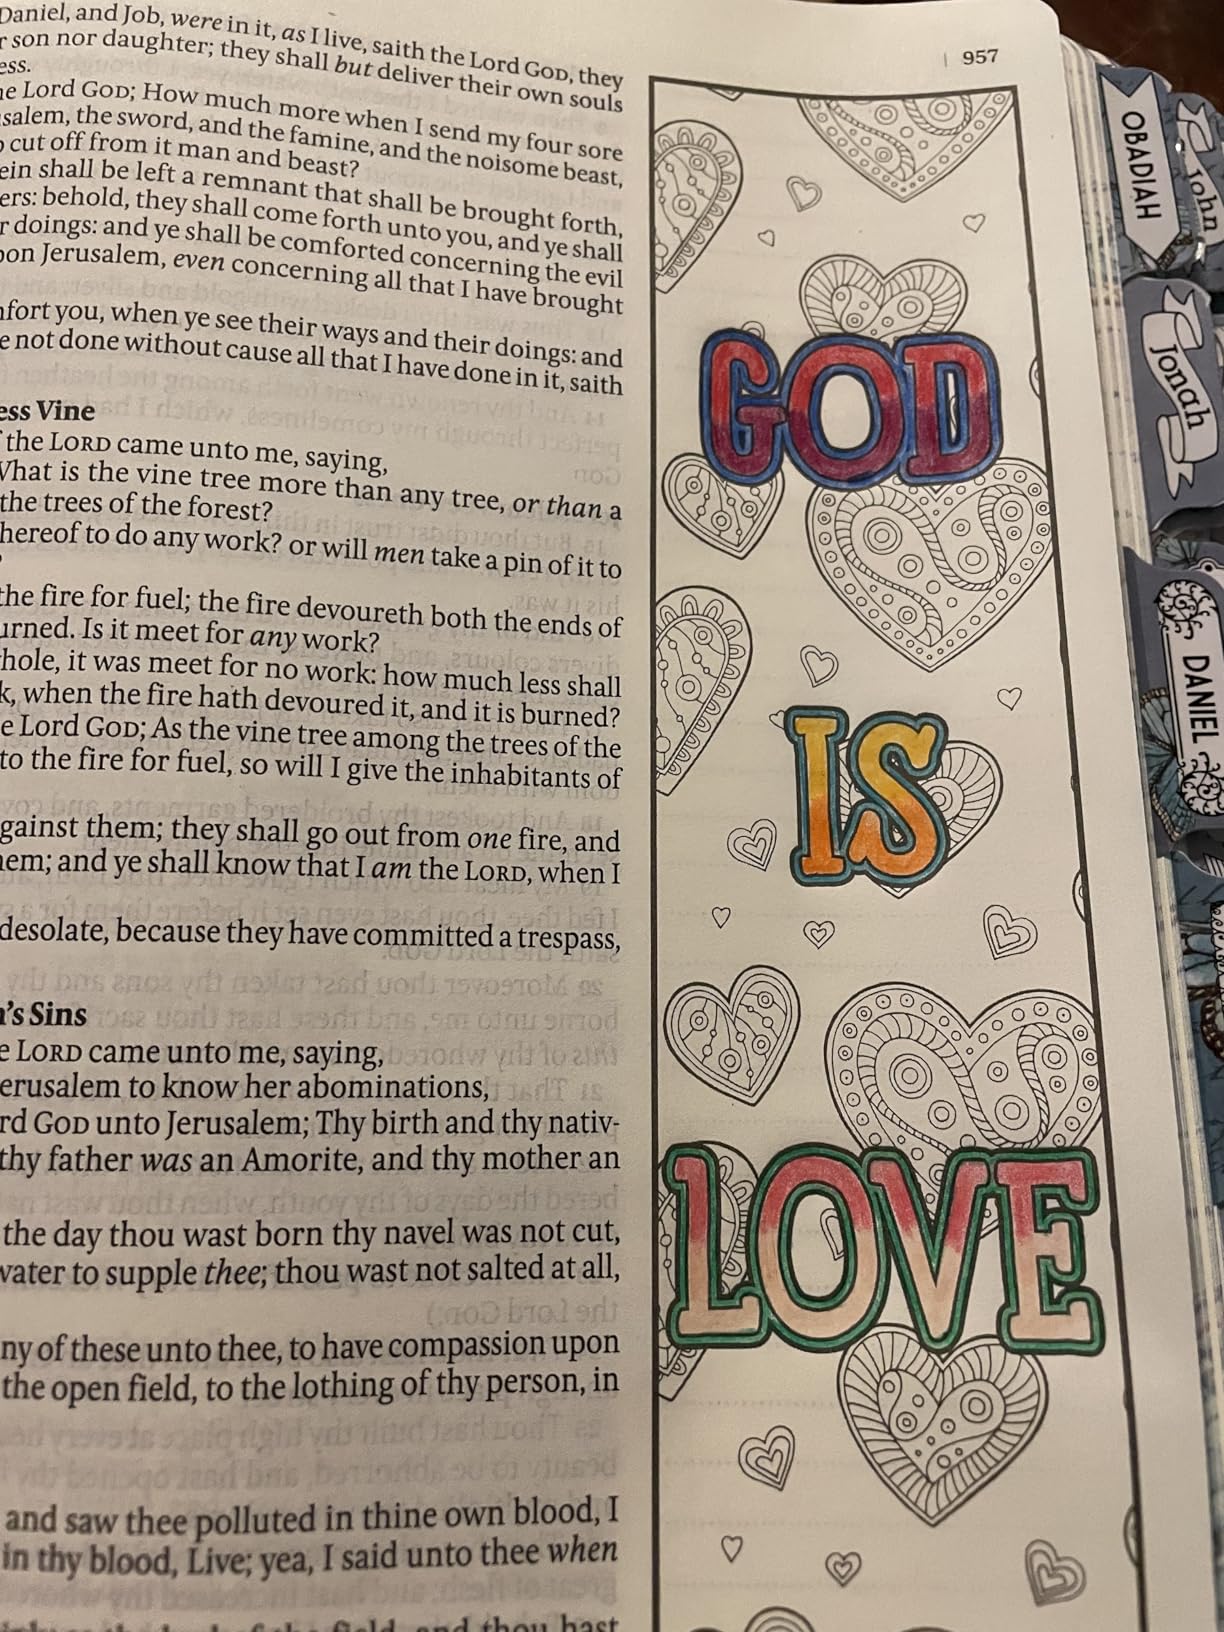 Daniel, and Job, were in it, as I live, saith the Lord GOD, they
son nor daughter; they shall but deliver their own souls
Lord GOD; How much more when I send my four sore
the sword, and the famine, and the noisome beast,
cut off from it man and beast?
shall be left a remnant that shall be brought forth,
behold, they shall come forth unto you, and ye shall
doings: and ye shall be comforted concerning the evil
Jerusalem, even concerning all that I have brought
you, when ye see their ways and their doings: and
not done without cause all that I have done in it, saith
Vine
the LORD came unto me, saying,
What is the vine tree more than any tree, or than a
the trees of the forest?
hereof to do any work? or will men take a pin of it to
the fire for fuel; the fire devoureth both the ends of
Is it meet for any work?
it was meet for no work: how much less shall
when the fire hath devoured it, and it is burned?
Lord GOD; As the vine tree among the trees of the
to the fire for fuel, so will I give the inhabitants of
against them; they shall go out from one fire, and
and ye shall know that I am the LORD, when I
desolate, because they have committed a trespass,
's Sins
LORD came unto me, saying,
Jerusalem to know her abominations,
GOD unto Jerusalem; Thy birth and thy nativ-
thy father was an Amorite, and thy mother an
the day thou wast born thy navel was not cut,
water to supple thee; thou wast not salted at all,
of these unto thee, to have compassion upon
the open field, to the lothing of thy person, in
and saw thee polluted in thine own blood, I
in thy blood, Live; yea, I said unto thee when
field, and thou hast
957
GOD
IS
LOVE
OBADIAH
John
Jonah
DANIEL